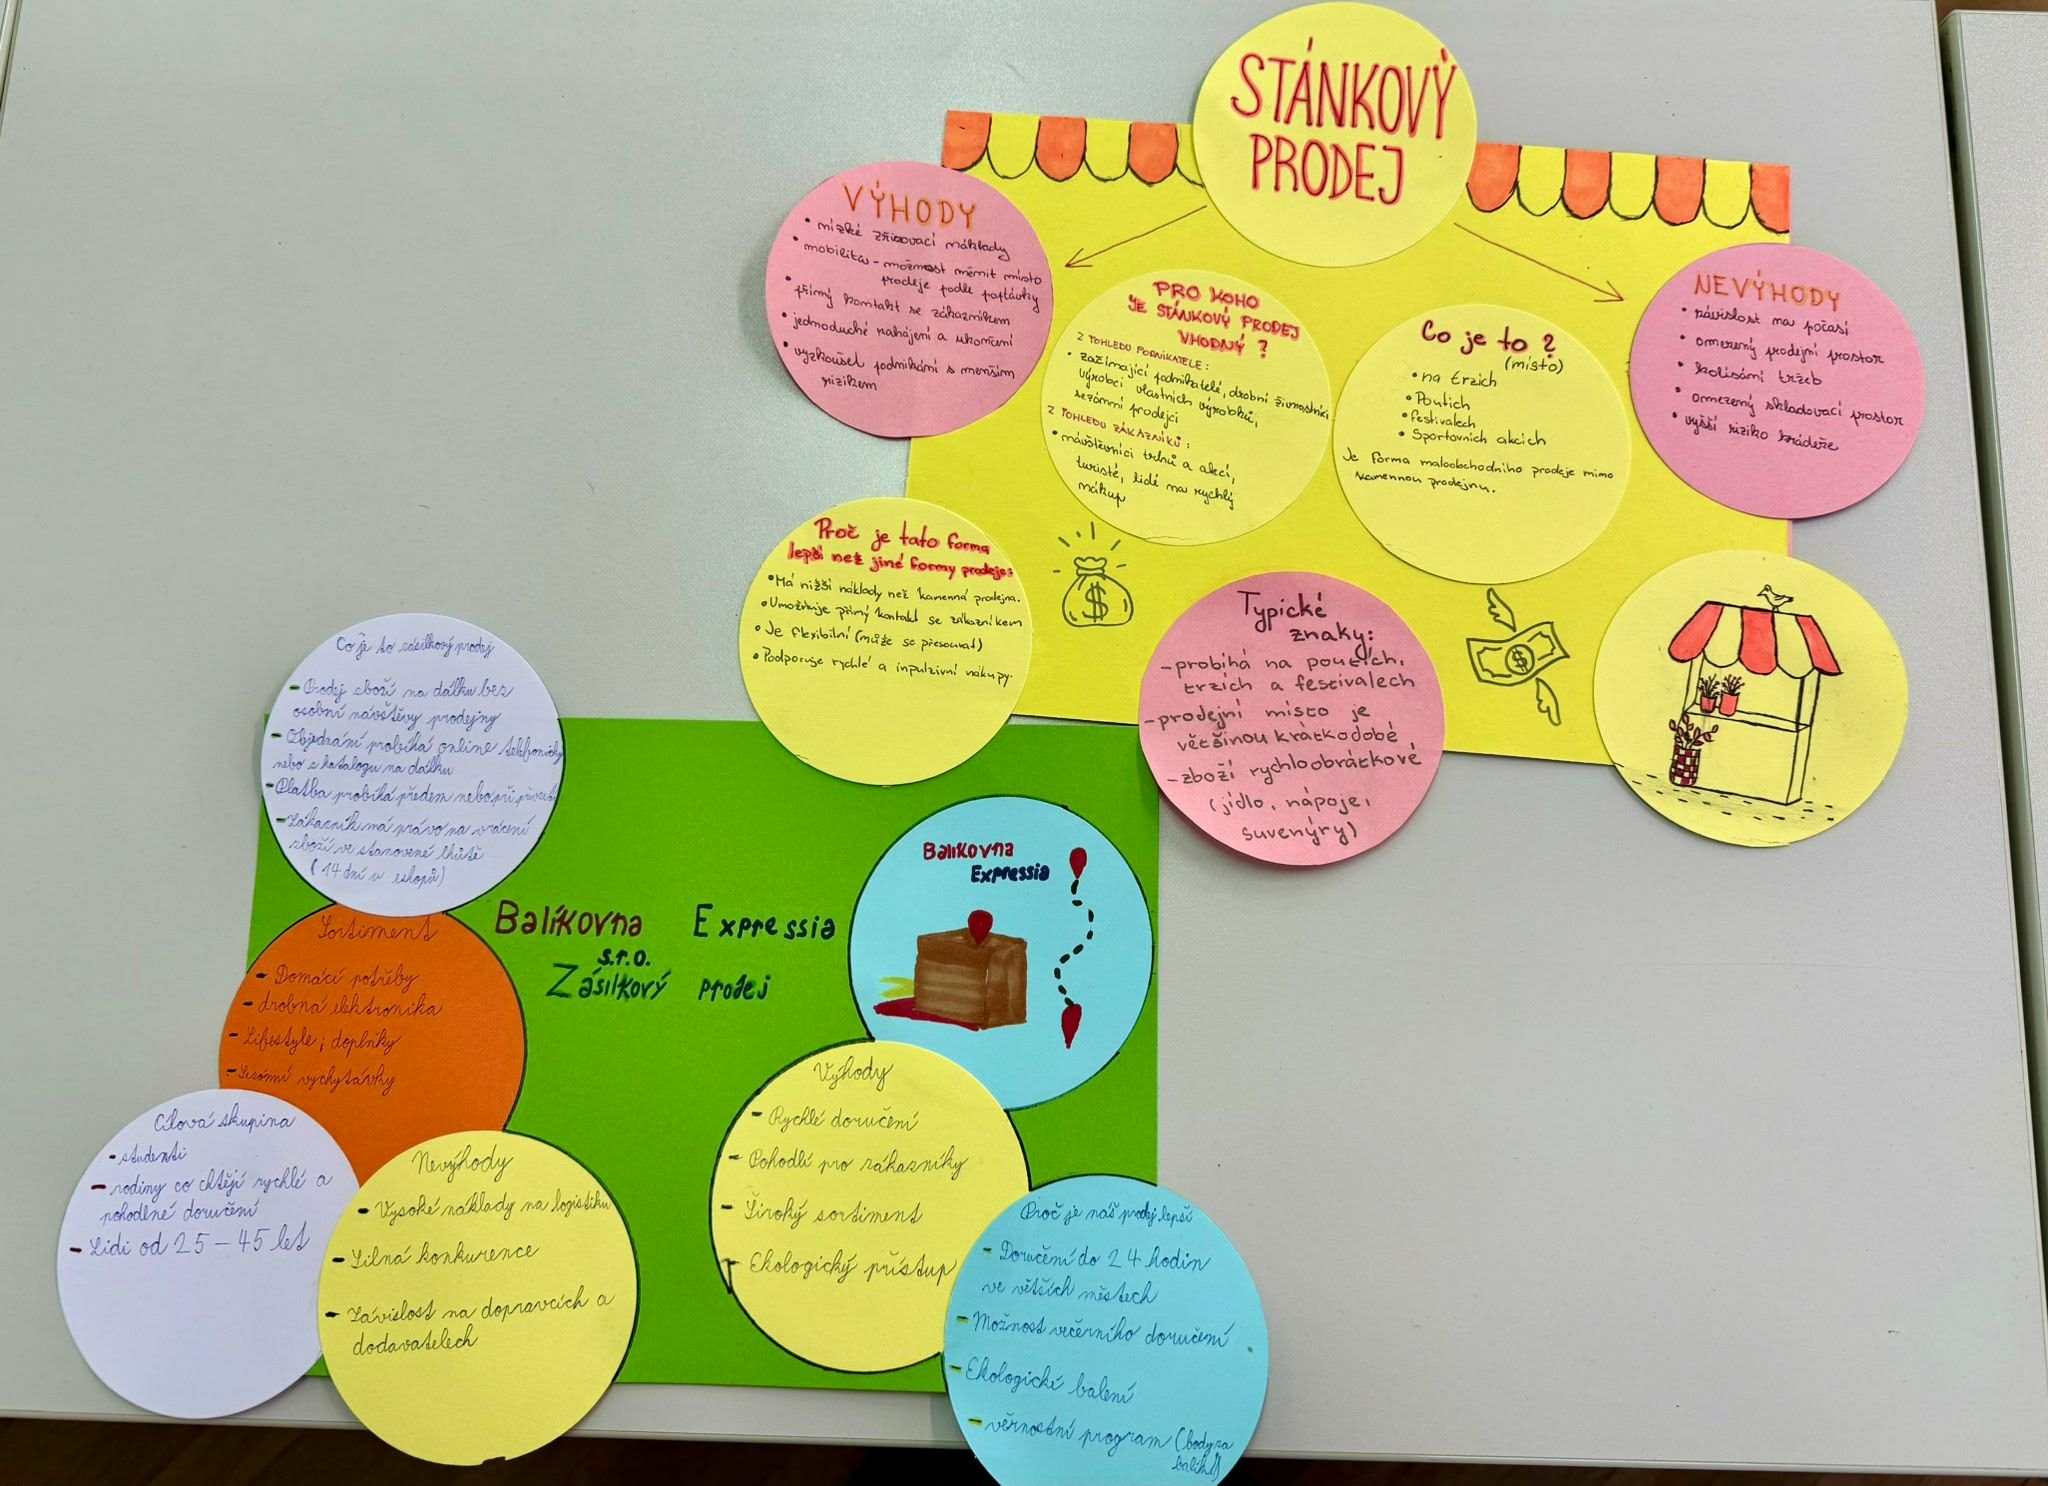 STÁNKOVÝ
PRODEJ
VÝHODY
• nízké zřizovací náklady
• mobilita - možnost měnit místo
prodeje podle poptávky
• přímý kontakt se zákazníkem
• jednoduché zahájení a ukončení
• vyzkoušet podnikání s menším
rizikem
PRO KOHO
JE STÁNKOVÝ PRODEJ
VHODNÝ ?
Z POHLEDU PODNIKATELE:
• začínající podnikatelé, drobní živnostníci
výrobci vlastních výrobků,
sezónní prodejci
Z POHLEDU ZÁKAZNÍKŮ:
• návštěvníci trhů a akcí,
turisté, lidé na rychlý
nákup
Co je to ?
(místo)
• na trzích
• Poutích
• festivalech
• Sportovních akcích
Je forma maloobchodního prodeje mimo
kamennou prodejnu.
NEVÝHODY
• závislost na počasí
• omezený prodejní prostor
• kolísání tržeb
• omezený skladovací prostor
• vyšší riziko krádeže
Proč je tato forma
lepší než jiné formy prodeje:
• Má nižší náklady než kamenná prodejna.
• Umožňuje přímý kontakt se zákazníkem
• Je flexibilní (může se přesouvat)
• Podporuje rychlé a inpulzivní nákupy.
$
$
Typické
znaky:
- probíhá na poutích,
trzích a festivalech
- prodejní místo je
většinou krátkodobé
- zboží rychloobrátkové
(jídlo, nápoje,
suvenýry)
Co je to zásilkový prodej
- Prodej zboží na dálku bez
osobní návštěvy prodejny
- Objednání probíhá online telefonicky
nebo z katalogu na dálku
- Platba probíhá předem nebo při převzetí
- Zákazník má právo na vrácení
zboží ve stanovené lhůtě
(14 dní u eshopů)
Balíkovna Expressia
s.r.o.
Zásilkový prodej
Balíkovna
Expressia
Sortiment
- Domácí potřeby
- drobná elektronika
- Lifestyle ; doplňky
- Sezónní vychytávky
Cílová skupina
- studenti
- rodiny co chtějí rychlé a
pohodlné doručení
- Lidi od 25 - 45 let
Nevýhody
- Vysoké náklady na logistiku
- Silná konkurence
- Závislost na dopravcích a
dodavatelech
Výhody
- Rychlé doručení
- Pohodlí pro zákazníky
- Široký sortiment
- Ekologický přístup
Proč je náš prodej lepší
- Doručení do 24 hodin
ve větších městech
- Možnost večerního doručení
- Ekologické balení
- věrnostní program (body za
balík)